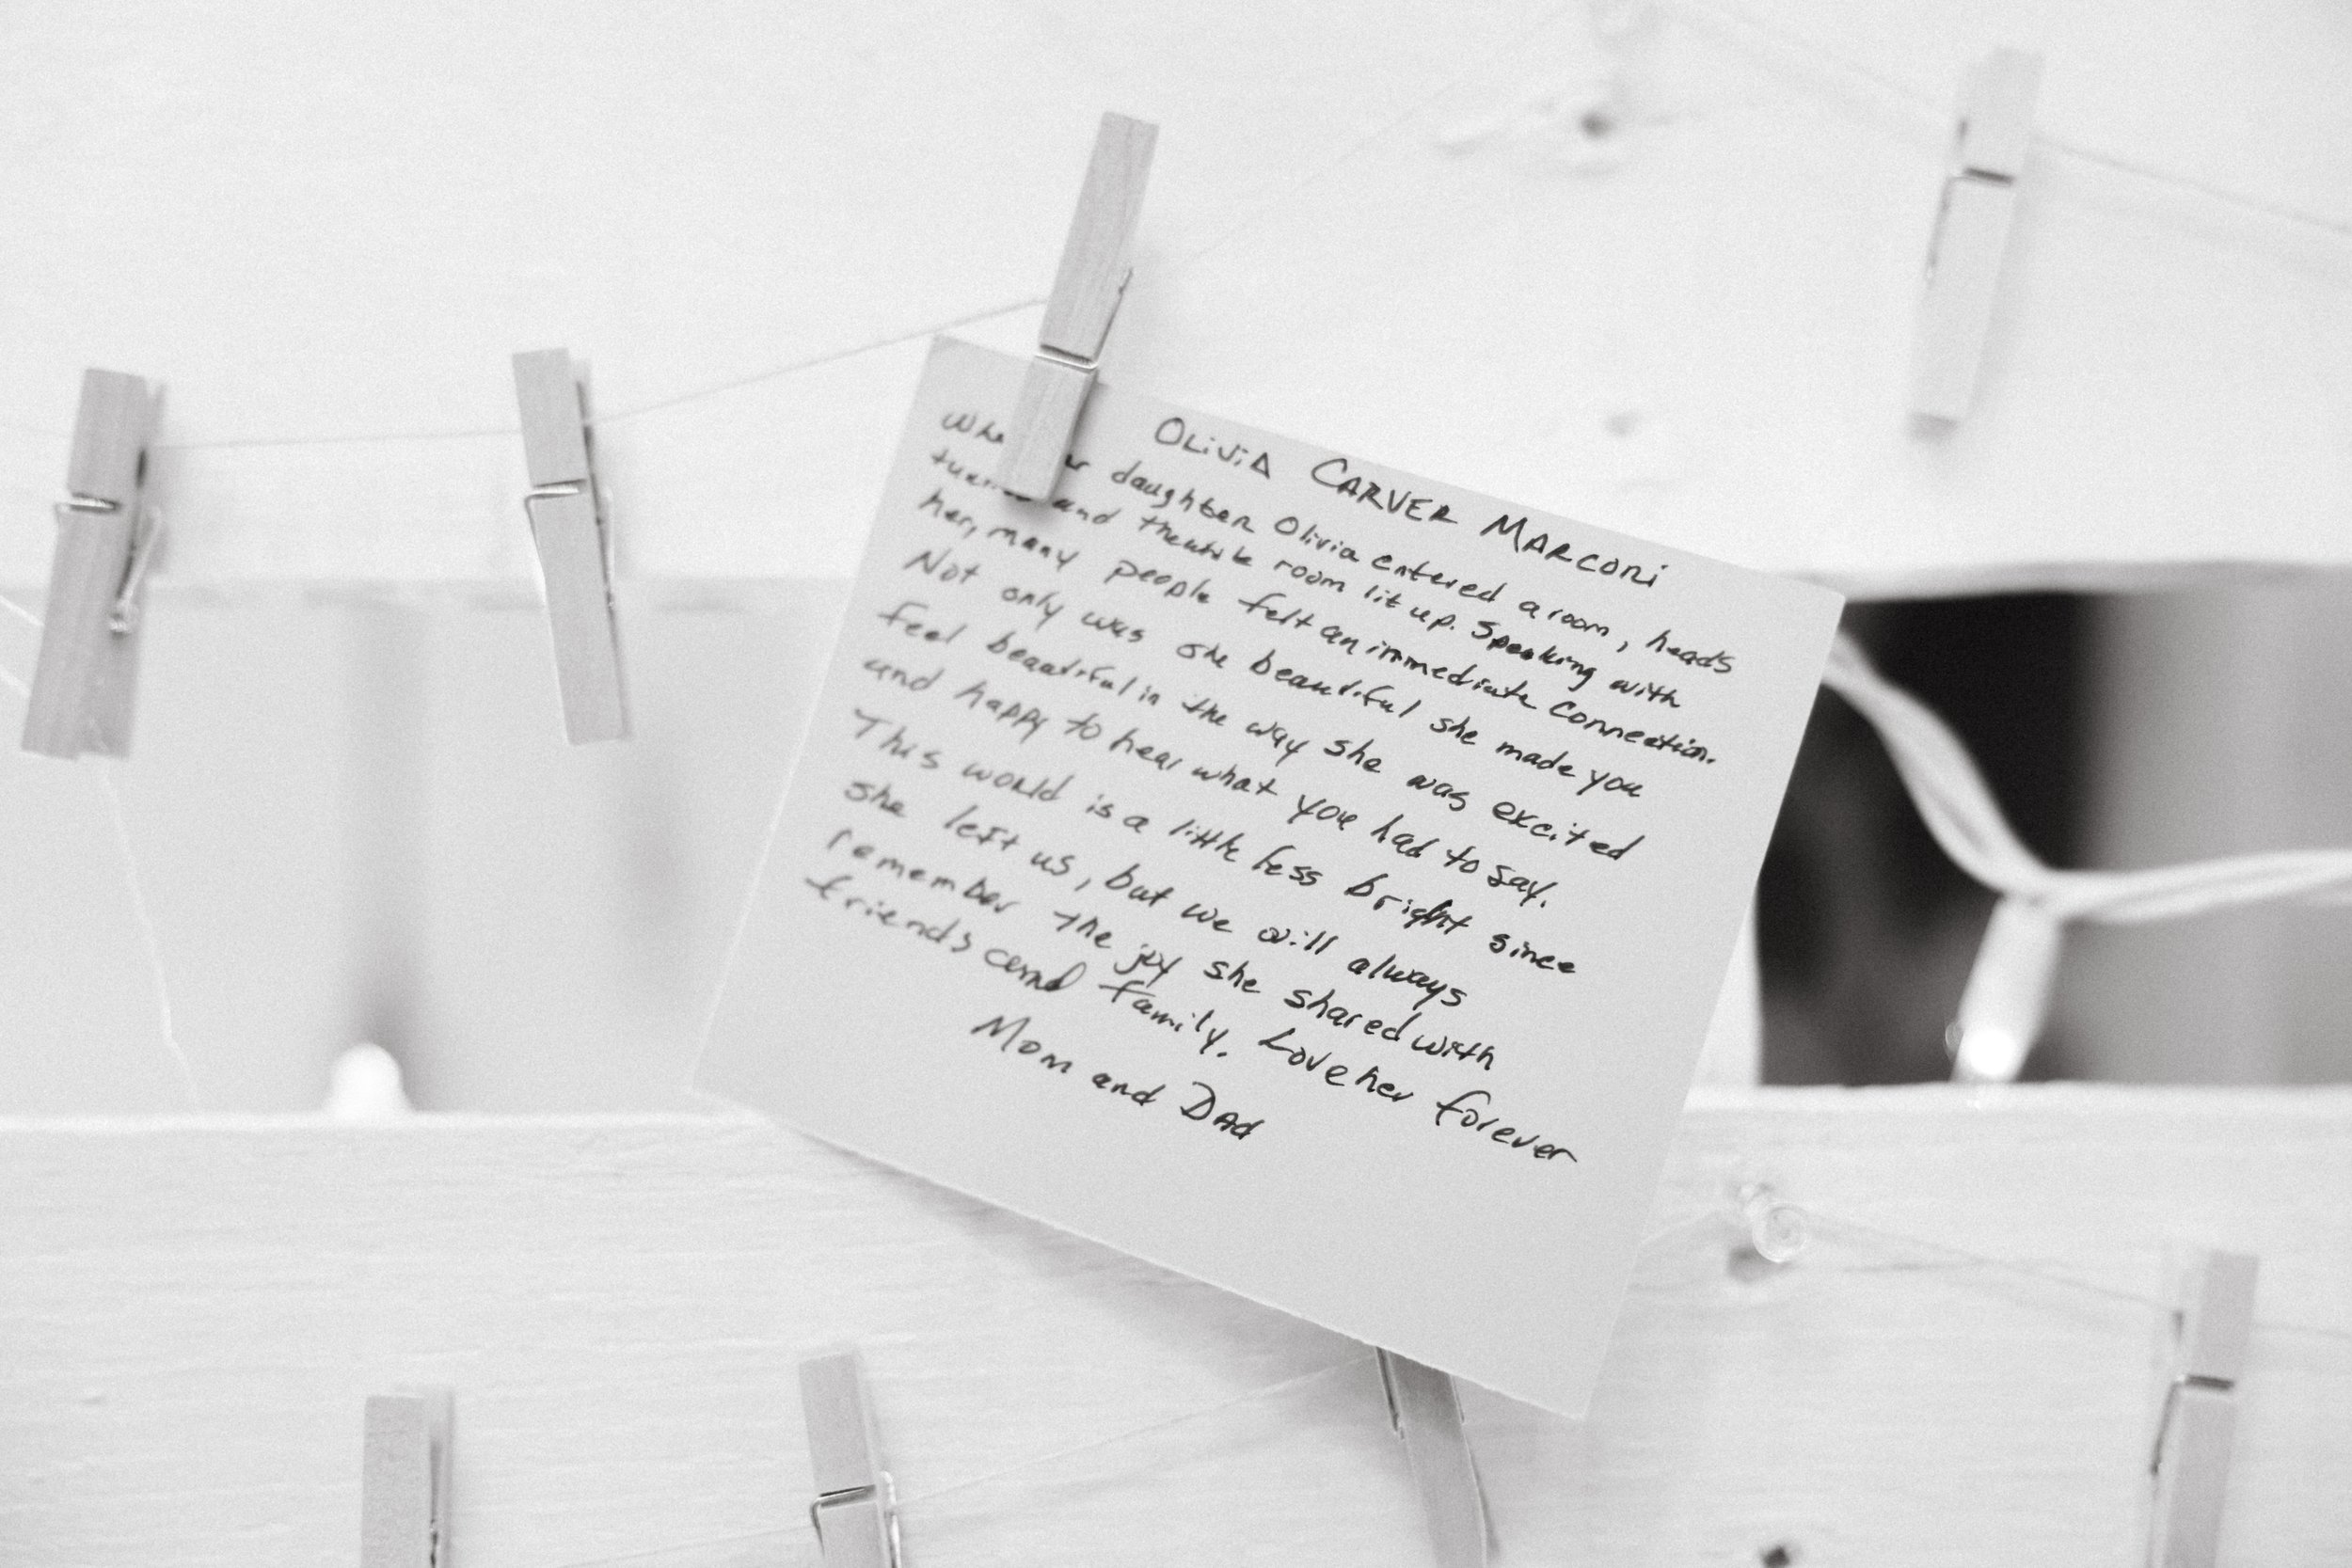 OLIVIA CARVER MARCONI
daughter Olivia entered a room, heads
and the whole room lit up. Speaking with
her, many people felt an immediate connection.
Not only was she beautiful she made you
feel beautiful in the way she was excited
and happy to hear what you had to say.
This world is a little less bright since
she left us, but we will always
remember the joy she shared with
friends and family. Love her forever
Mom and Dad